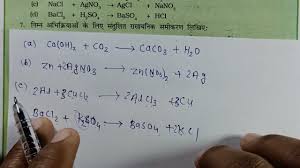 (c) NaCl + AgNO₃ → AgCl + NaNO₃
(d) BaCl₂ + H₂SO₄ → BaSO₄ + HCl
7. निम्न अभिक्रियाओं के लिए संतुलित रासायनिक समीकरण लिखिए:
(a) Ca(OH)₂ + CO₂ → CaCO₃ + H₂O
(b) Zn + 2AgNO₃ → Zn(NO₃)₂ + 2Ag
(c) 2Al + 3CuCl₂ → 2AlCl₃ + 3Cu
BaCl₂ + K₂SO₄ → BaSO₄ + 2KCl